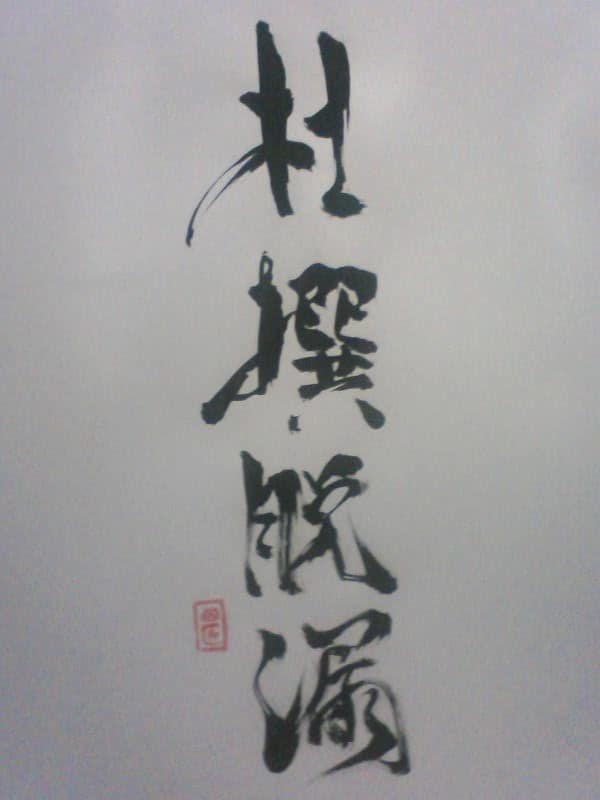 杜撰脱漏